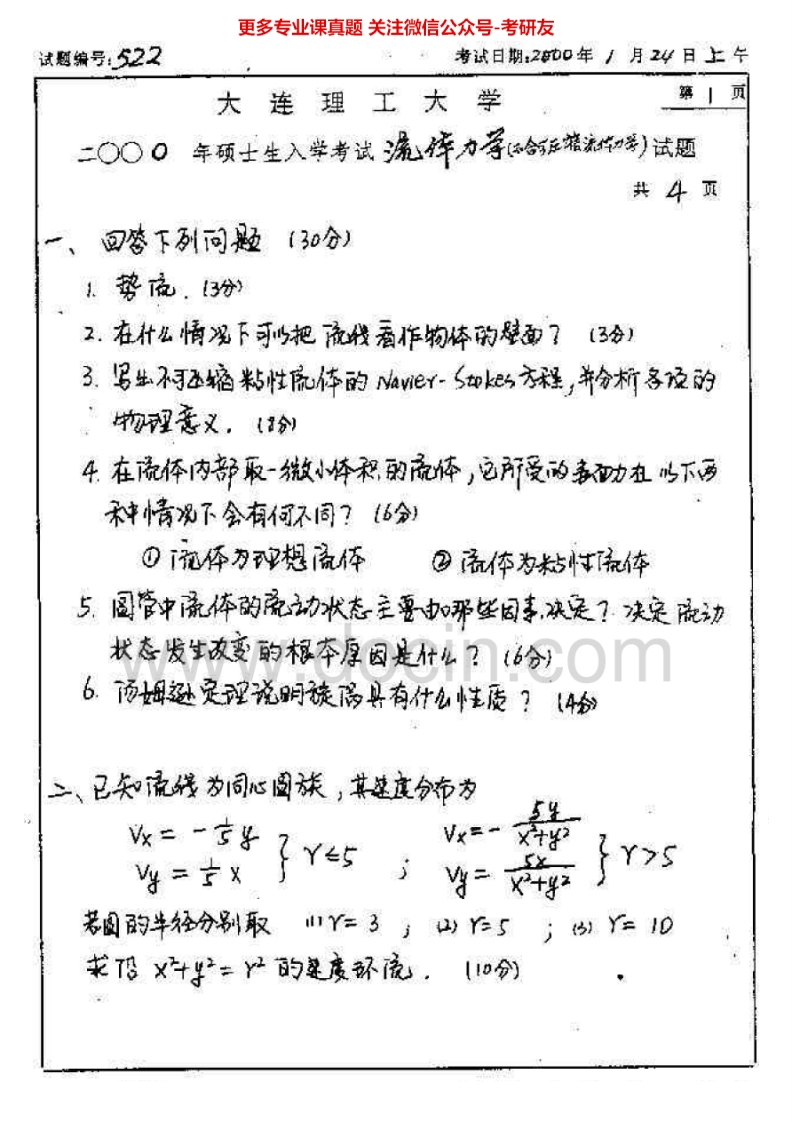 更多专业课真题 关注微信公众号-考研友
试题编号:522 考试日期:2000年1月24日上午
大连理工大学 第1页
二〇〇0年硕士生入学考试 流体力学(不含可压缩流体力学)试题
共4页
一、回答下列问题 (30分)
1. 势流. (3分)
2. 在什么情况下可以把流线看作物体的壁面? (3分)
3. 写出不可压缩粘性流体的Navier-Stokes方程,并分析各项的
物理意义. (8分)
4. 在流体内部取一微小体积的流体,它所受的表面力在以下两
种情况下会有何不同? (6分)
① 流体为理想流体 ② 流体为粘性流体
5. 圆管中流体的流动状态主要由哪些因素决定? 决定流动
状态发生改变的根本原因是什么? (6分)
www.docin.com
6. 汤姆逊定理说明旋涡具有什么性质? (4分)
二、已知流线为同心圆族,其速度分布为
Vx = -1/5 y Vy = 1/5 x } r≤5 ; Vx = - 5y/(x²+y²) Vy = 5x/(x²+y²) } r>5
若圆的半径分别取 (1) r=3 ; (2) r=5 ; (3) r=10
求沿 x²+y²=r² 的速度环流. (10分)